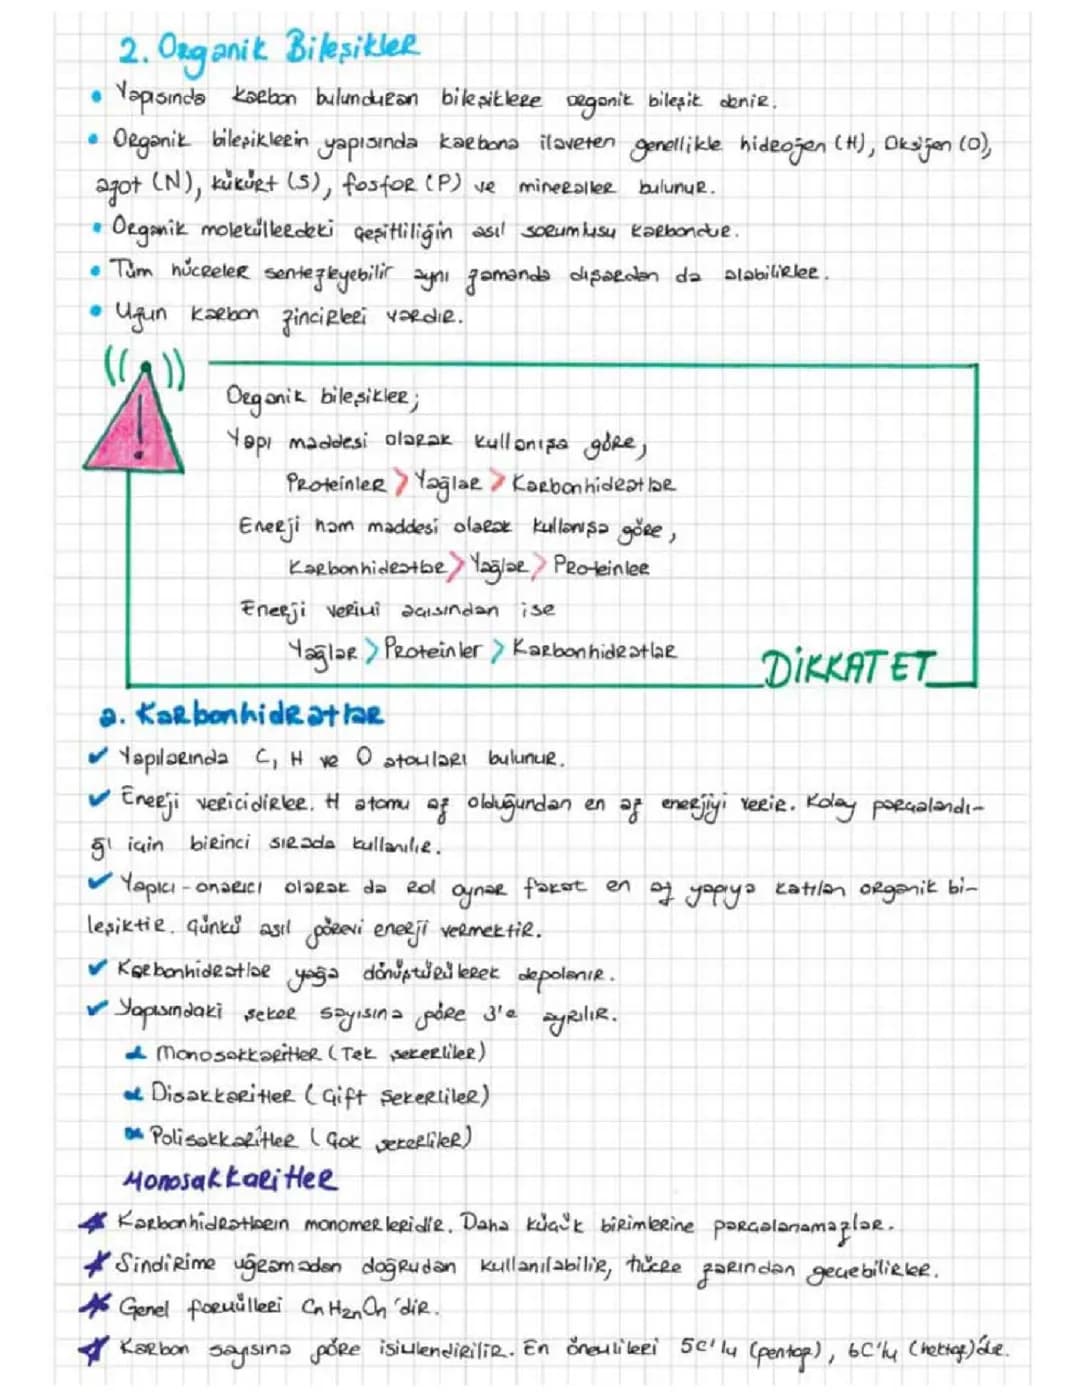 2. Organik Bileşikler
• Yapısında karbon bulunduran bileşiklere organik bileşik denir.
• Organik bileşiklerin yapısında karbona ilaveten genellikle hidrojen (H), Oksijen (O),
azot (N), kükürt (S), fosfor (P) ve mineraller bulunur.
• Organik moleküllerdeki çeşitliliğin asıl sorumlusu karbondur.
• Tüm hücreler sentezleyebilir aynı zamanda dışardan da alabilirler.
• Uzun karbon zincirleri vardır.
!
Organik bileşikler;
Yapı maddesi olarak kullanışa göre,
Proteinler > Yağlar > Karbonhidratlar
Enerji ham maddesi olarak kullanışa göre,
Karbonhidratlar > Yağlar > Proteinler
Enerji verimi açısından ise
Yağlar > Proteinler > Karbonhidratlar
DİKKAT ET
a. Karbonhidratlar
✓ Yapılarında C, H ve O atomları bulunur.
✓ Enerji vericidirler. H atomu az olduğundan en az enerjiyi verir. Kolay parçalandı-
ğı için birinci sırada kullanılır.
✓ Yapıcı-onarıcı olarak da rol oynar fakat en az yapıya katılan organik bi-
leşiktir. Çünkü asıl görevi enerji vermektir.
✓ Karbonhidratlar yağa dönüştürülerek depolanır.
✓ Yapısındaki şeker sayısına göre 3'e ayrılır.
Monosakkaritler (Tek şekerliler)
Disakkaritler (Çift Şekerliler)
Polisakkaritler (Çok şekerliler)
Monosakkaritler
Karbonhidratların monomerleridir. Daha küçük birimlerine parçalanamazlar.
Sindirime uğramadan doğrudan kullanılabilir, hücre zarından geçebilirler.
Genel formülleri CnH2nOn 'dir.
Karbon sayısına göre isimlendirilir. En önemlileri 5C'lu (pentoz), 6C'lu (hektoz)'dur.